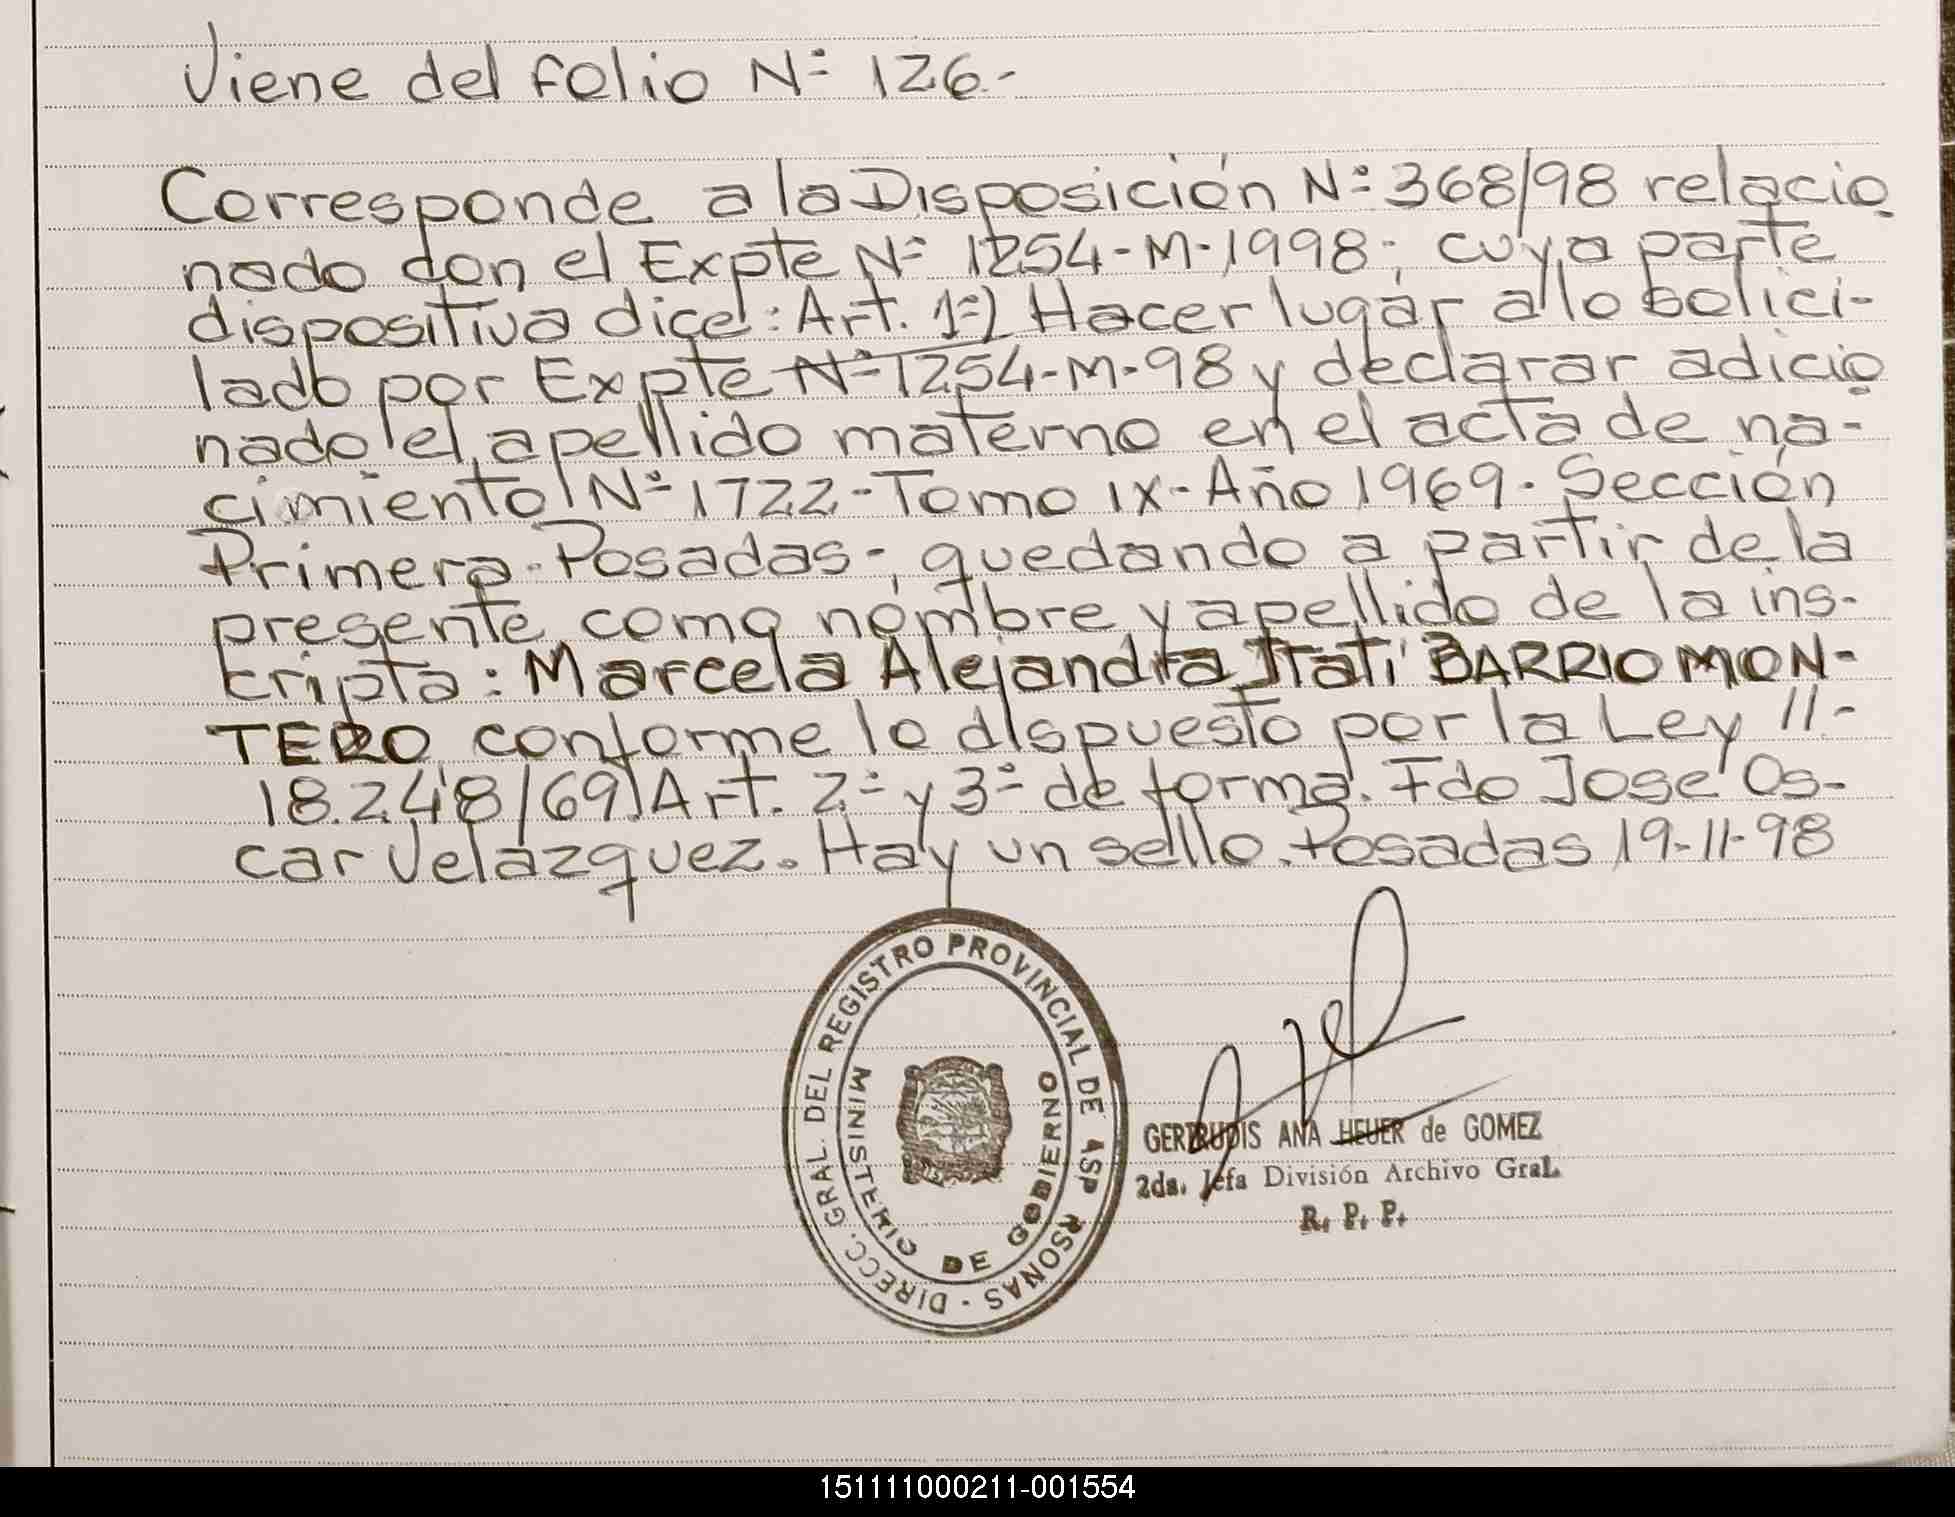 Viene del folio Nº 126.-
Corresponde a la Disposición Nº 368/98 relacio
nado con el Expte Nº 1254-M-1998; cuya parte
dispositiva dice: Art. 1º) Hacer lugar a lo solici-
tado por Expte Nº 1254-M-98 y declarar adicio
nado el apellido materno en el acta de na-
cimiento Nº 1722-Tomo IX-Año 1969. Sección
Primera-Posadas-; quedando a partir de la
presente como nombre y apellido de la ins-
cripta: Marcela Alejandra Itatí BARRIO MON-
TERO conforme lo dispuesto por la Ley 11-
18.248/69. Art. 2º y 3º de forma. Fdo Jose Os-
car Velazquez. Hay un sello. Posadas 19-11-98
DIRECC. GRAL. DEL REGISTRO PROVINCIAL DE RSONAS -
MINISTERIO DE GOBIERNO
GERTRUDIS ANA HEUER de GOMEZ
2da. Jefa División Archivo Gral.
R. P. P.
151111000211-001554